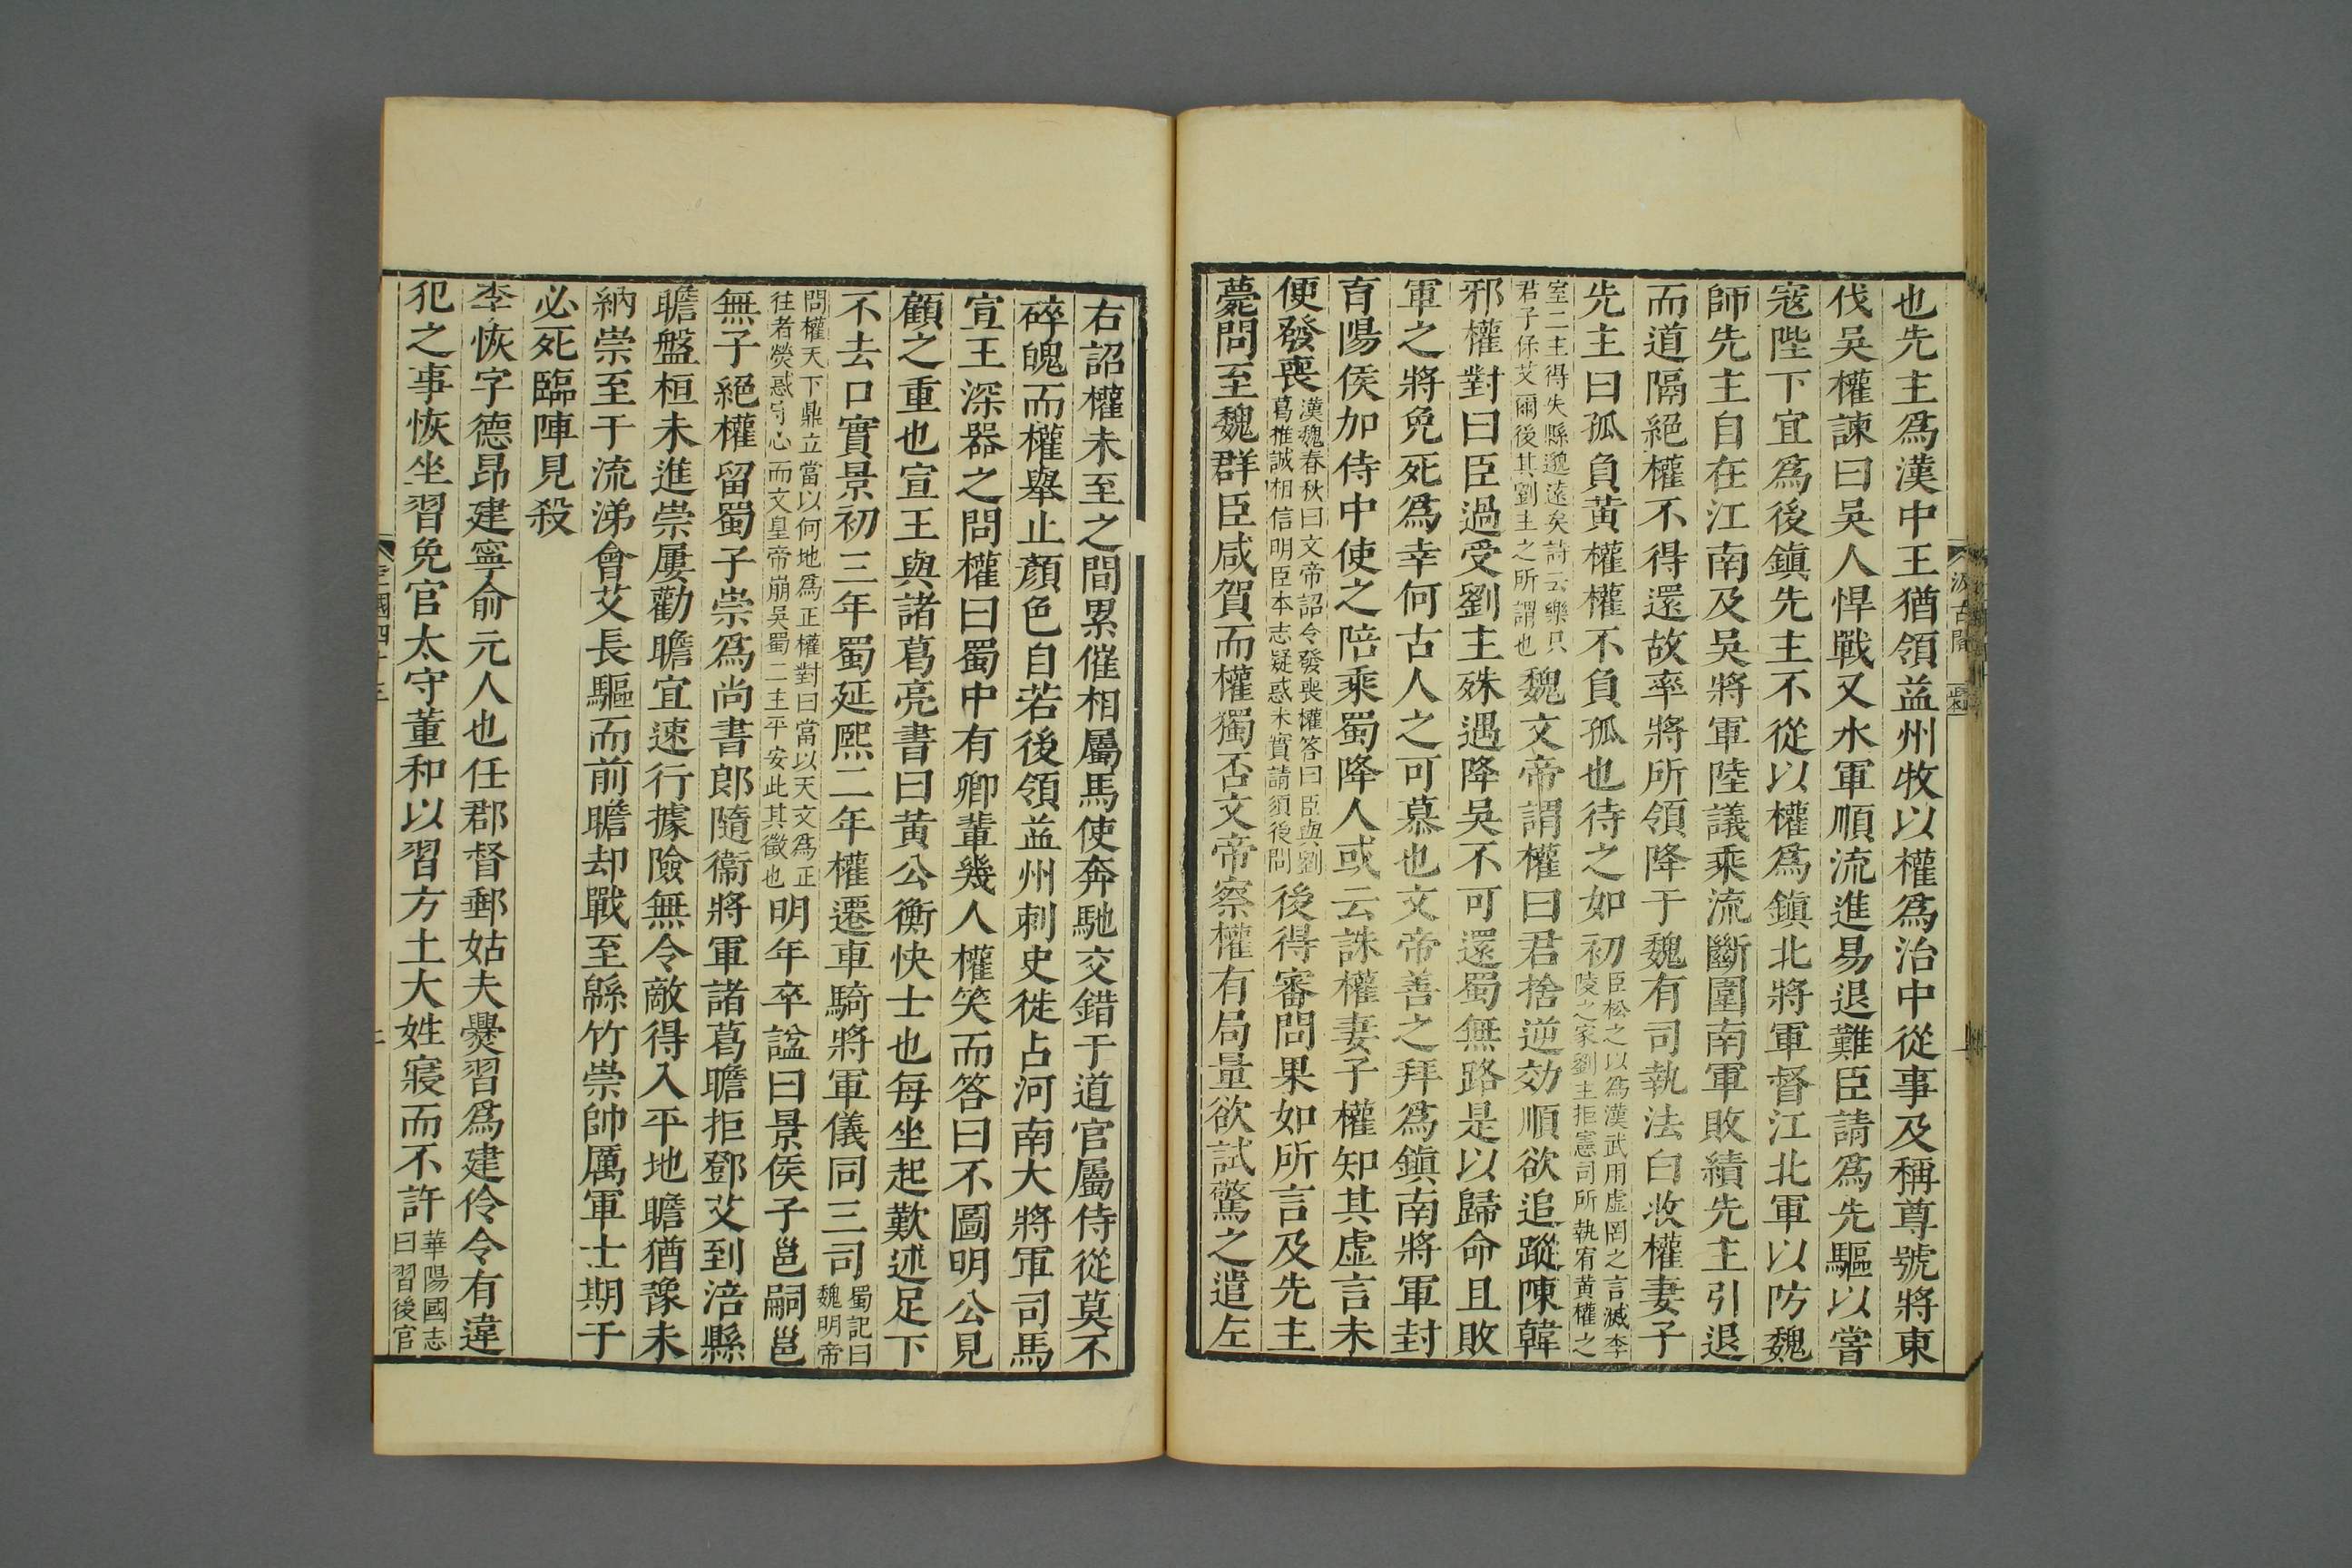 也先主爲漢中王猶領益州牧以權爲治中從事及稱尊號將東
伐吳權諫曰吳人悍戰又水軍順流進易退難臣請爲先驅以嘗
寇陛下宜爲後鎮先主不從以權爲鎮北將軍督江北軍以防魏
師先主自在江南及吳將軍陸議乘流斷圍南軍敗績先主引退
而道隔絕權不得還故率將所領降于魏有司執法白收權妻子
先主曰孤負黃權權不負孤也待之如初
臣松之以爲漢武用虛罔之言滅李
陵之家劉主拒憲司所執宥黃權之
室二主得失縣邈遠矣詩云樂只
君子保艾爾後其劉主之所謂也
魏文帝謂權曰君捨逆効順欲追蹤陳韓
邪權對曰臣過受劉主殊遇降吳不可還蜀無路是以歸命且敗
軍之將免死爲幸何古人之可慕也文帝善之拜爲鎮南將軍封
育陽侯加侍中使之陪乘蜀降人或云誅權妻子權知其虛言未
便發喪
漢魏春秋曰文帝詔令發喪權答曰臣與劉
葛推誠相信明臣本志疑惑未實請須後問
後得審問果如所言及先主
薨問至魏群臣咸賀而權獨否文帝察權有局量欲試驚之遣左
汲古閣
右詔權未至之間累催相屬馬使奔馳交錯于道官屬侍從莫不
碎魄而權舉止顏色自若後領益州刺史徙占河南大將軍司馬
宣王深器之問權曰蜀中有卿輩幾人權笑而答曰不圖明公見
顧之重也宣王與諸葛亮書曰黃公衡快士也每坐起歎述足下
不去口實景初三年蜀延熙二年權遷車騎將軍儀同三司
蜀記曰
魏明帝
問權天下鼎立當以何地爲正權對曰當以天文爲正
往者熒惑守心而文皇帝崩吳蜀二主平安此其徵也
明年卒諡曰景侯子邕嗣邕
無子絕權留蜀子崇爲尚書郎隨衞將軍諸葛瞻拒鄧艾到涪縣
瞻盤桓未進崇屢勸瞻宜速行據險無令敵得入平地瞻猶豫未
納崇至于流涕會艾長驅而前瞻却戰至緜竹崇帥厲軍士期于
必死臨陣見殺
李恢字德昂建寧俞元人也任郡督郵姑夫爨習爲建伶令有違
犯之事恢坐習免官太守董和以習方土大姓寢而不許
華陽國志
曰習後官